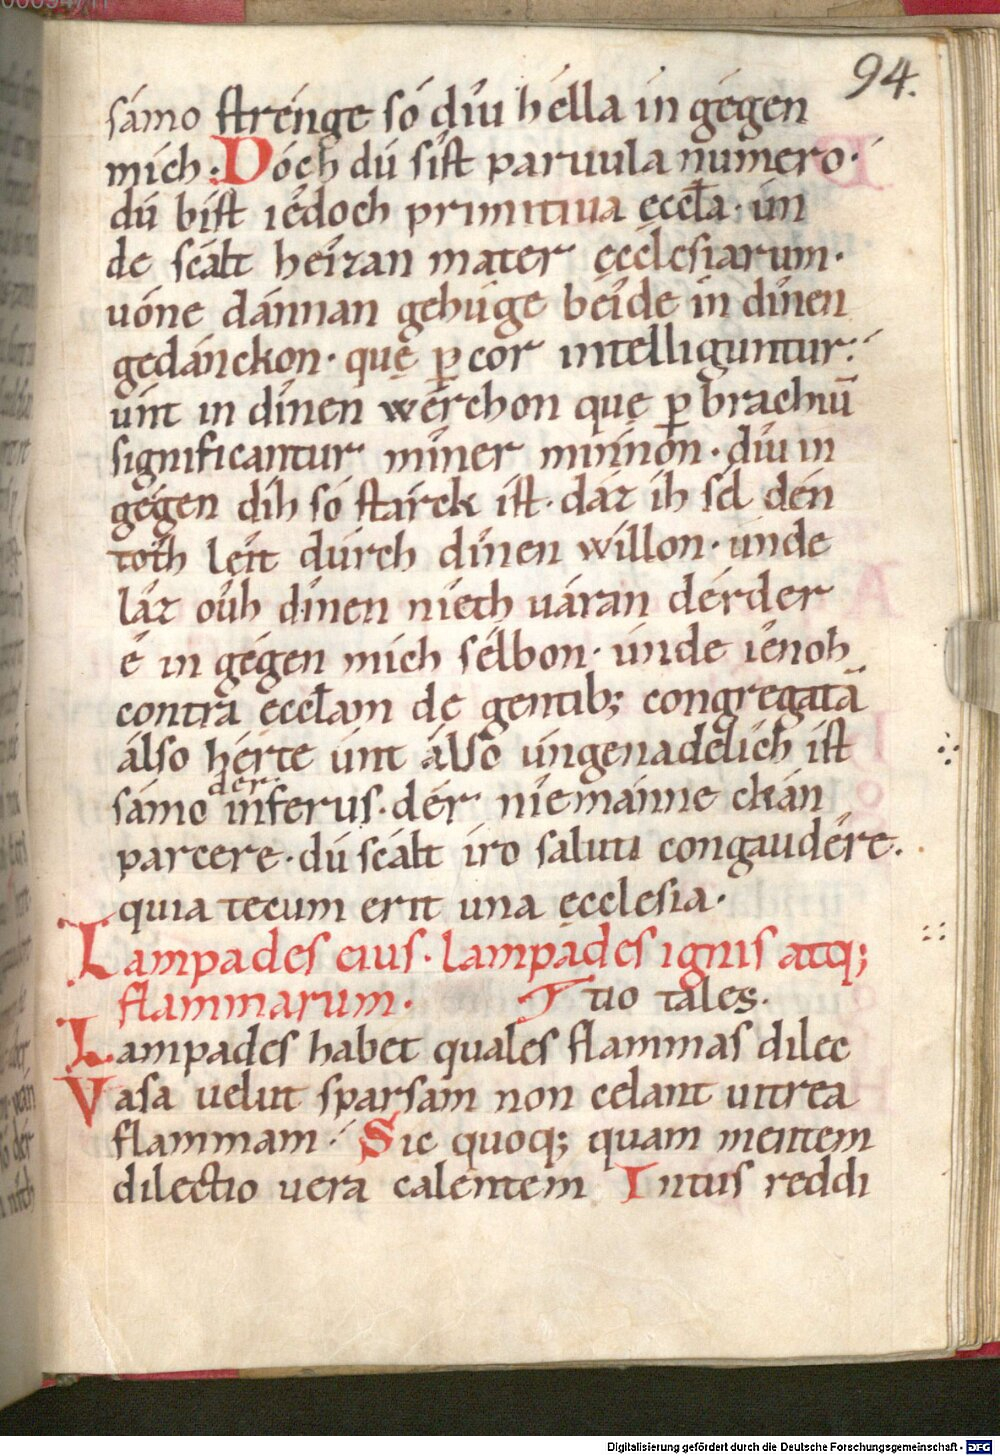 94.
sámo strénge só díu hélla in gégen
mich. Dóch dú síst paruula numero.
dú bist iédoch primitiua ęccła. ún
de scált heízan mater ęcclesiarum.
uóne dánnan gehúge béide in dínen
gedánckon. quę ꝑ cor intelliguntur.
únt in dínen wérchon quę ꝑ brachiū
significantur míner mínnon. díu in
gégen díh só stárck ist. dáz ih sél dén
tôth leît dúrch dínen willon. únde
láz oúh dínen niéth uáran dérder
é in gégen mích sélbon. únde iénoh
contra ęccłam de gentib; congregatā
álso hérte únt álso úngenadelich ist
der
sámo inferus. dér niemánne ckán
parcere. dú scált íro saluti congaudére.
quia tecum erit una ęcclesia.
Lampades eius. lampades ignis atq;
flammarum. Ttio tales.
Lampades habet quales flammas dilec
Vasa uelut sparsam non celant uitrea
flammam. Sic quoq; quam mentem
dilectio uera calentem Intus reddi
Digitalisierung gefördert durch die Deutsche Forschungsgemeinschaft - DFG